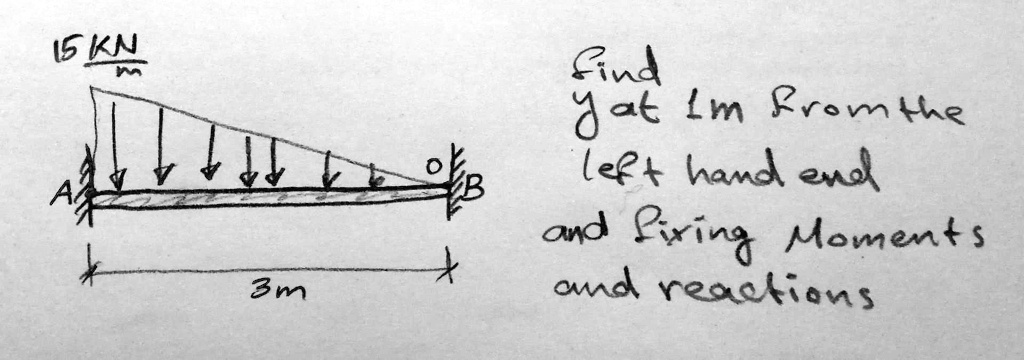 15 KN
m
0
A
B
3m
find
y at 1m from the
left hand end
and fixing Moments
and reactions